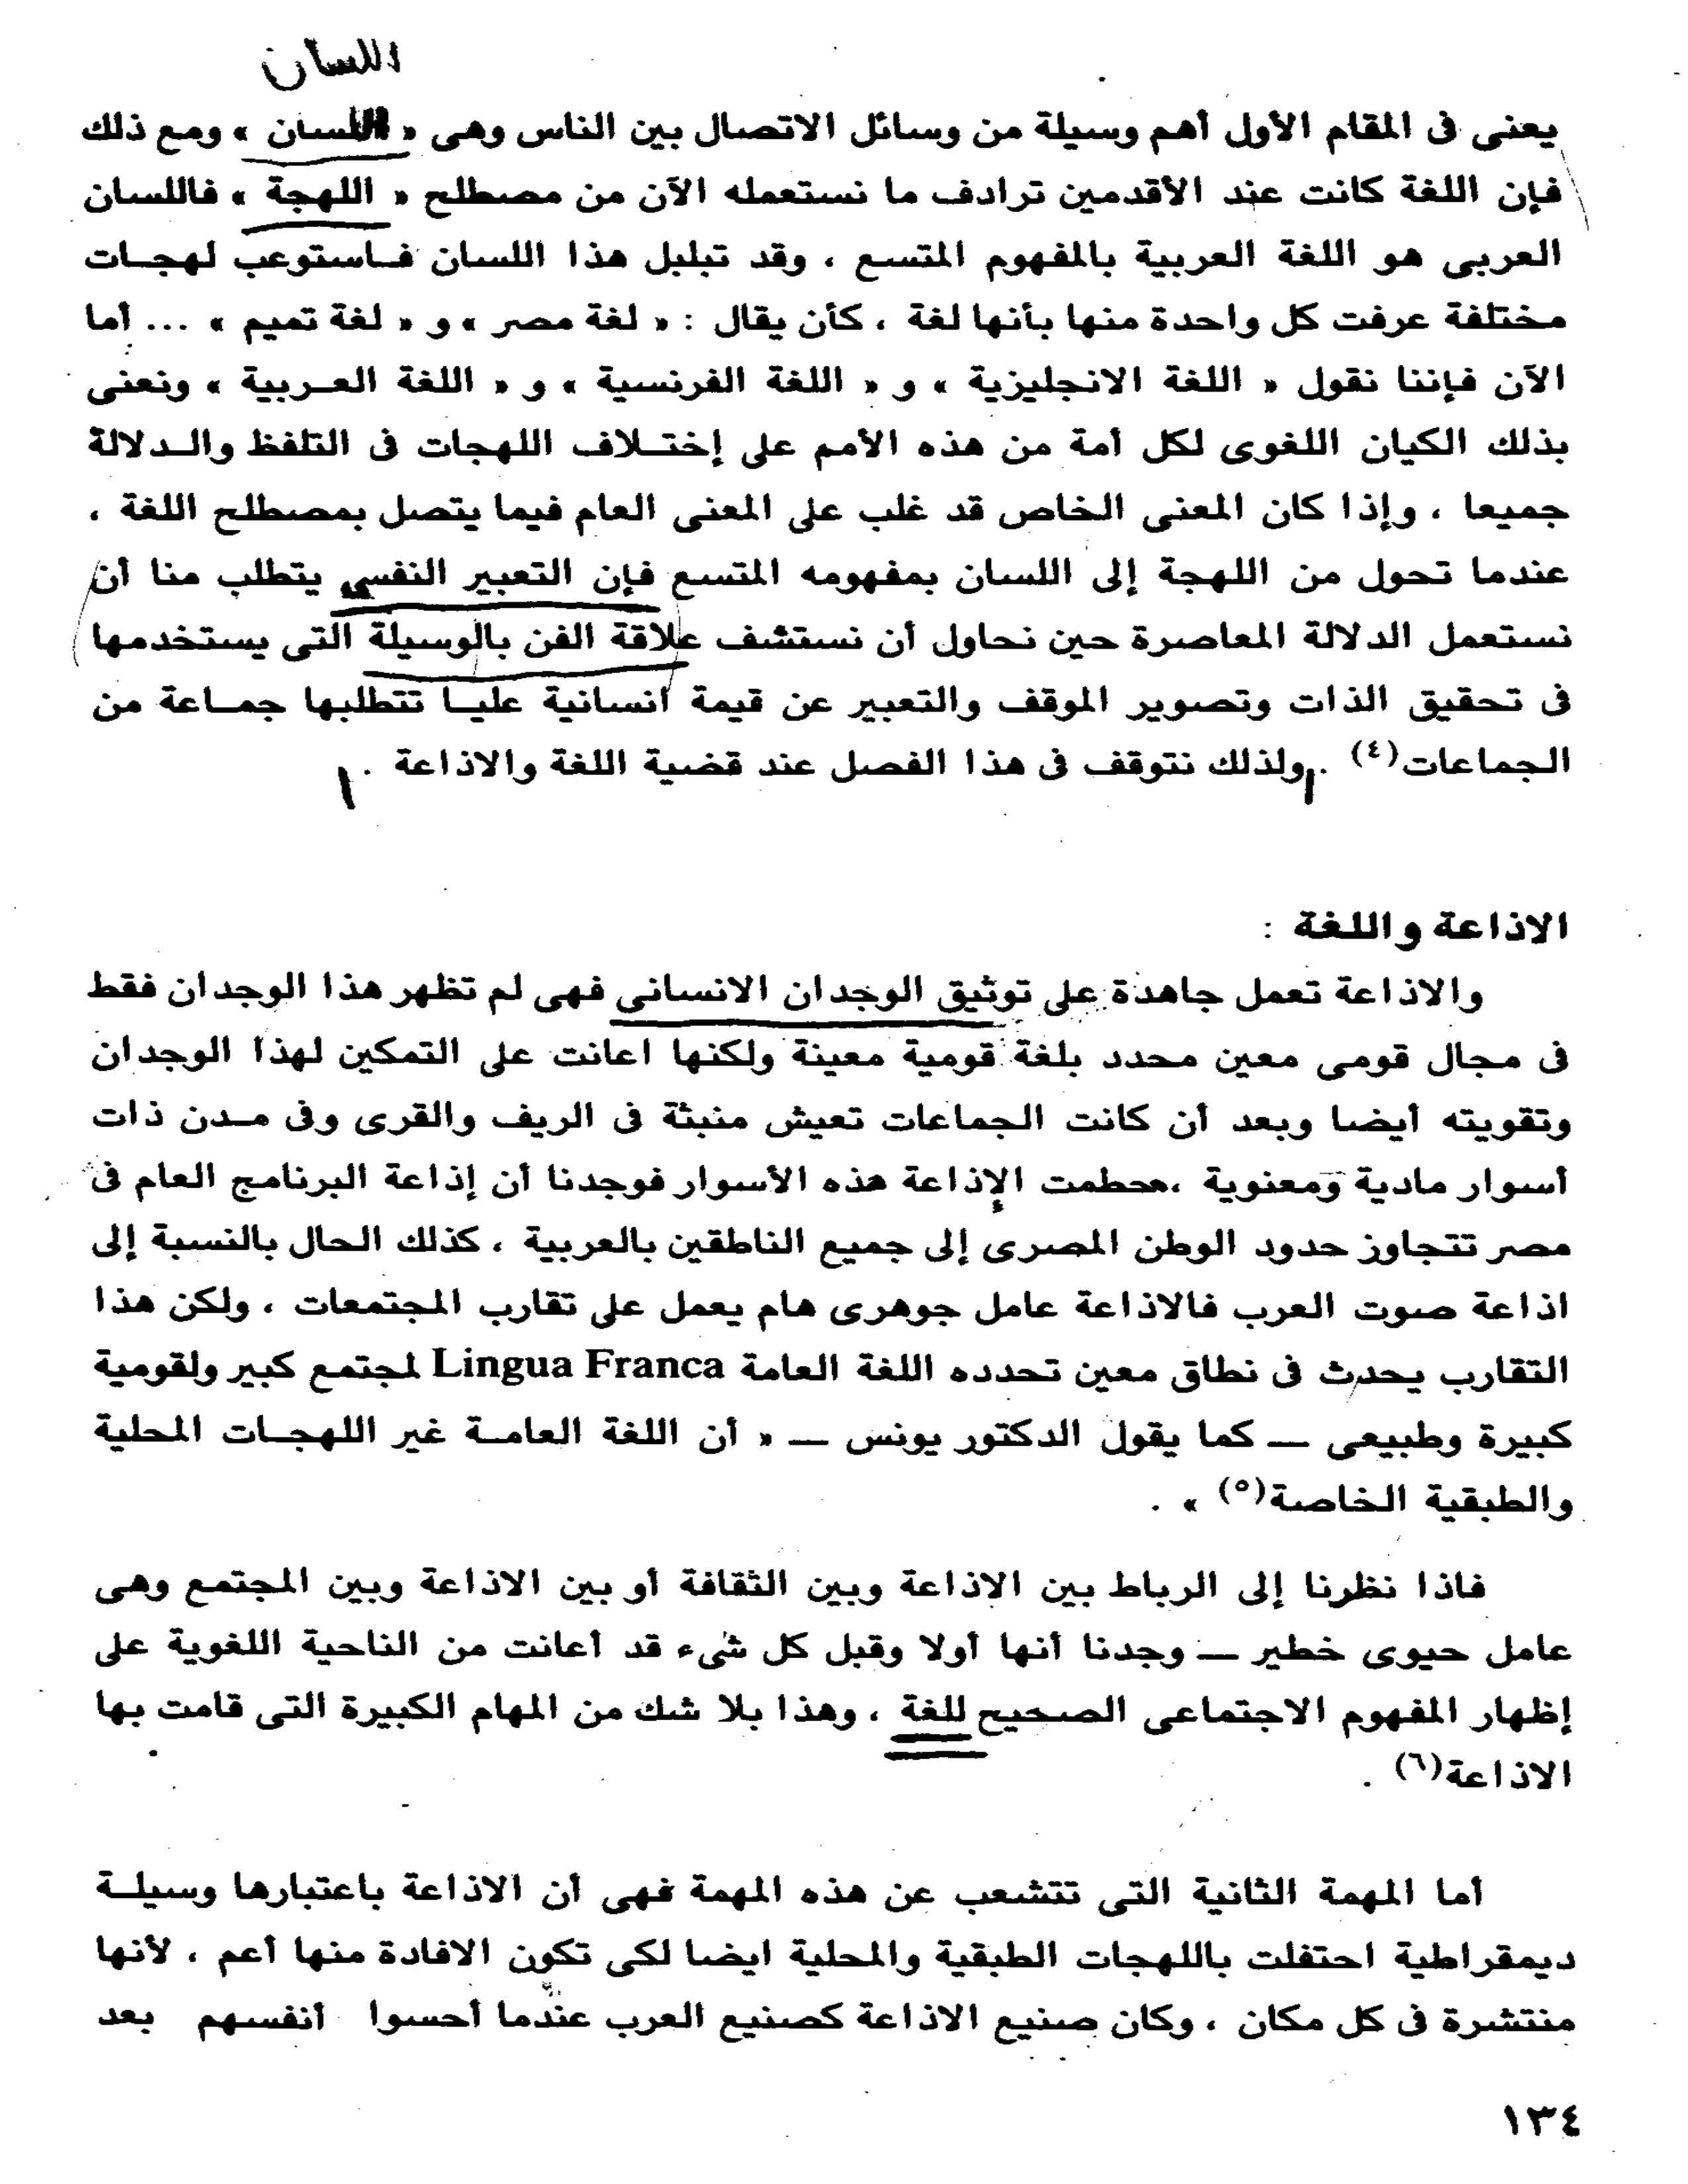 اللسان
يعنى فى المقام الأول أهم وسيلة من وسائل الاتصال بين الناس وهى « اللسان » ومع ذلك
فإن اللغة كانت عند الأقدمين ترادف ما نستعمله الآن من مصطلح « اللهجة » فاللسان
العربى هو اللغة العربية بالمفهوم المتسع ، وقد تبلبل هذا اللسان فـاستوعب لهجـات
مختلفة عرفت كل واحدة منها بأنها لغة ، كأن يقال : « لغة مصر » و « لغة تميم » ... أما
الآن فإننا نقول « اللغة الانجليزية » و « اللغة الفرنسية » و « اللغة العـربية » ونعنى
بذلك الكيان اللغوى لكل أمة من هذه الأمم على إختـلاف اللهجات فى التلفظ والـدلالة
جميعا ، وإذا كان المعنى الخاص قد غلب على المعنى العام فيما يتصل بمصطلح اللغة ،
عندما تحول من اللهجة إلى اللسان بمفهومه المتسع فإن التعبير النفسى يتطلب منا أن
نستعمل الدلالة المعاصرة حين نحاول أن نستشف علاقة الفن بالوسيلة التى يستخدمها
فى تحقيق الذات وتصوير الموقف والتعبير عن قيمة انسانية عليـا تتطلبها جمـاعة من
الجماعات(٤) . ولذلك نتوقف فى هذا الفصل عند قضية اللغة والاذاعة .
الاذاعة واللغة :
والاذاعة تعمل جاهدة على توثيق الوجدان الانسانى فهى لم تظهر هذا الوجدان فقط
فى مجال قومى معين محدد بلغة قومية معينة ولكنها اعانت على التمكين لهذا الوجدان
وتقويته أيضا وبعد أن كانت الجماعات تعيش منبثة فى الريف والقرى وفى مـدن ذات
أسوار مادية ومعنوية ،حطمت الإذاعة هذه الأسوار فوجدنا أن إذاعة البرنامج العام فى
مصر تتجاوز حدود الوطن المصرى إلى جميع الناطقين بالعربية ، كذلك الحال بالنسبة إلى
اذاعة صوت العرب فالاذاعة عامل جوهرى هام يعمل على تقارب المجتمعات ، ولكن هذا
التقارب يحدث فى نطاق معين تحدده اللغة العامة Lingua Franca لمجتمع كبير ولقومية
كبيرة وطبيعى — كما يقول الدكتور يونس — « أن اللغة العامـة غير اللهجـات المحلية
والطبقية الخاصة(٥) » .
فاذا نظرنا إلى الرباط بين الاذاعة وبين الثقافة أو بين الاذاعة وبين المجتمع وهى
عامل حيوى خطير — وجدنا أنها أولا وقبل كل شىء قد أعانت من الناحية اللغوية على
إظهار المفهوم الاجتماعى الصحيح للغة ، وهذا بلا شك من المهام الكبيرة التى قامت بها
الاذاعة(٦) .
أما المهمة الثانية التى تتشعب عن هذه المهمة فهى أن الاذاعة باعتبارها وسيلـة
ديمقراطية احتفلت باللهجات الطبقية والمحلية ايضا لكى تكون الافادة منها أعم ، لأنها
منتشرة فى كل مكان ، وكان صنيع الاذاعة كصنيع العرب عندما أحسوا أنفسهم بعد
١٣٤